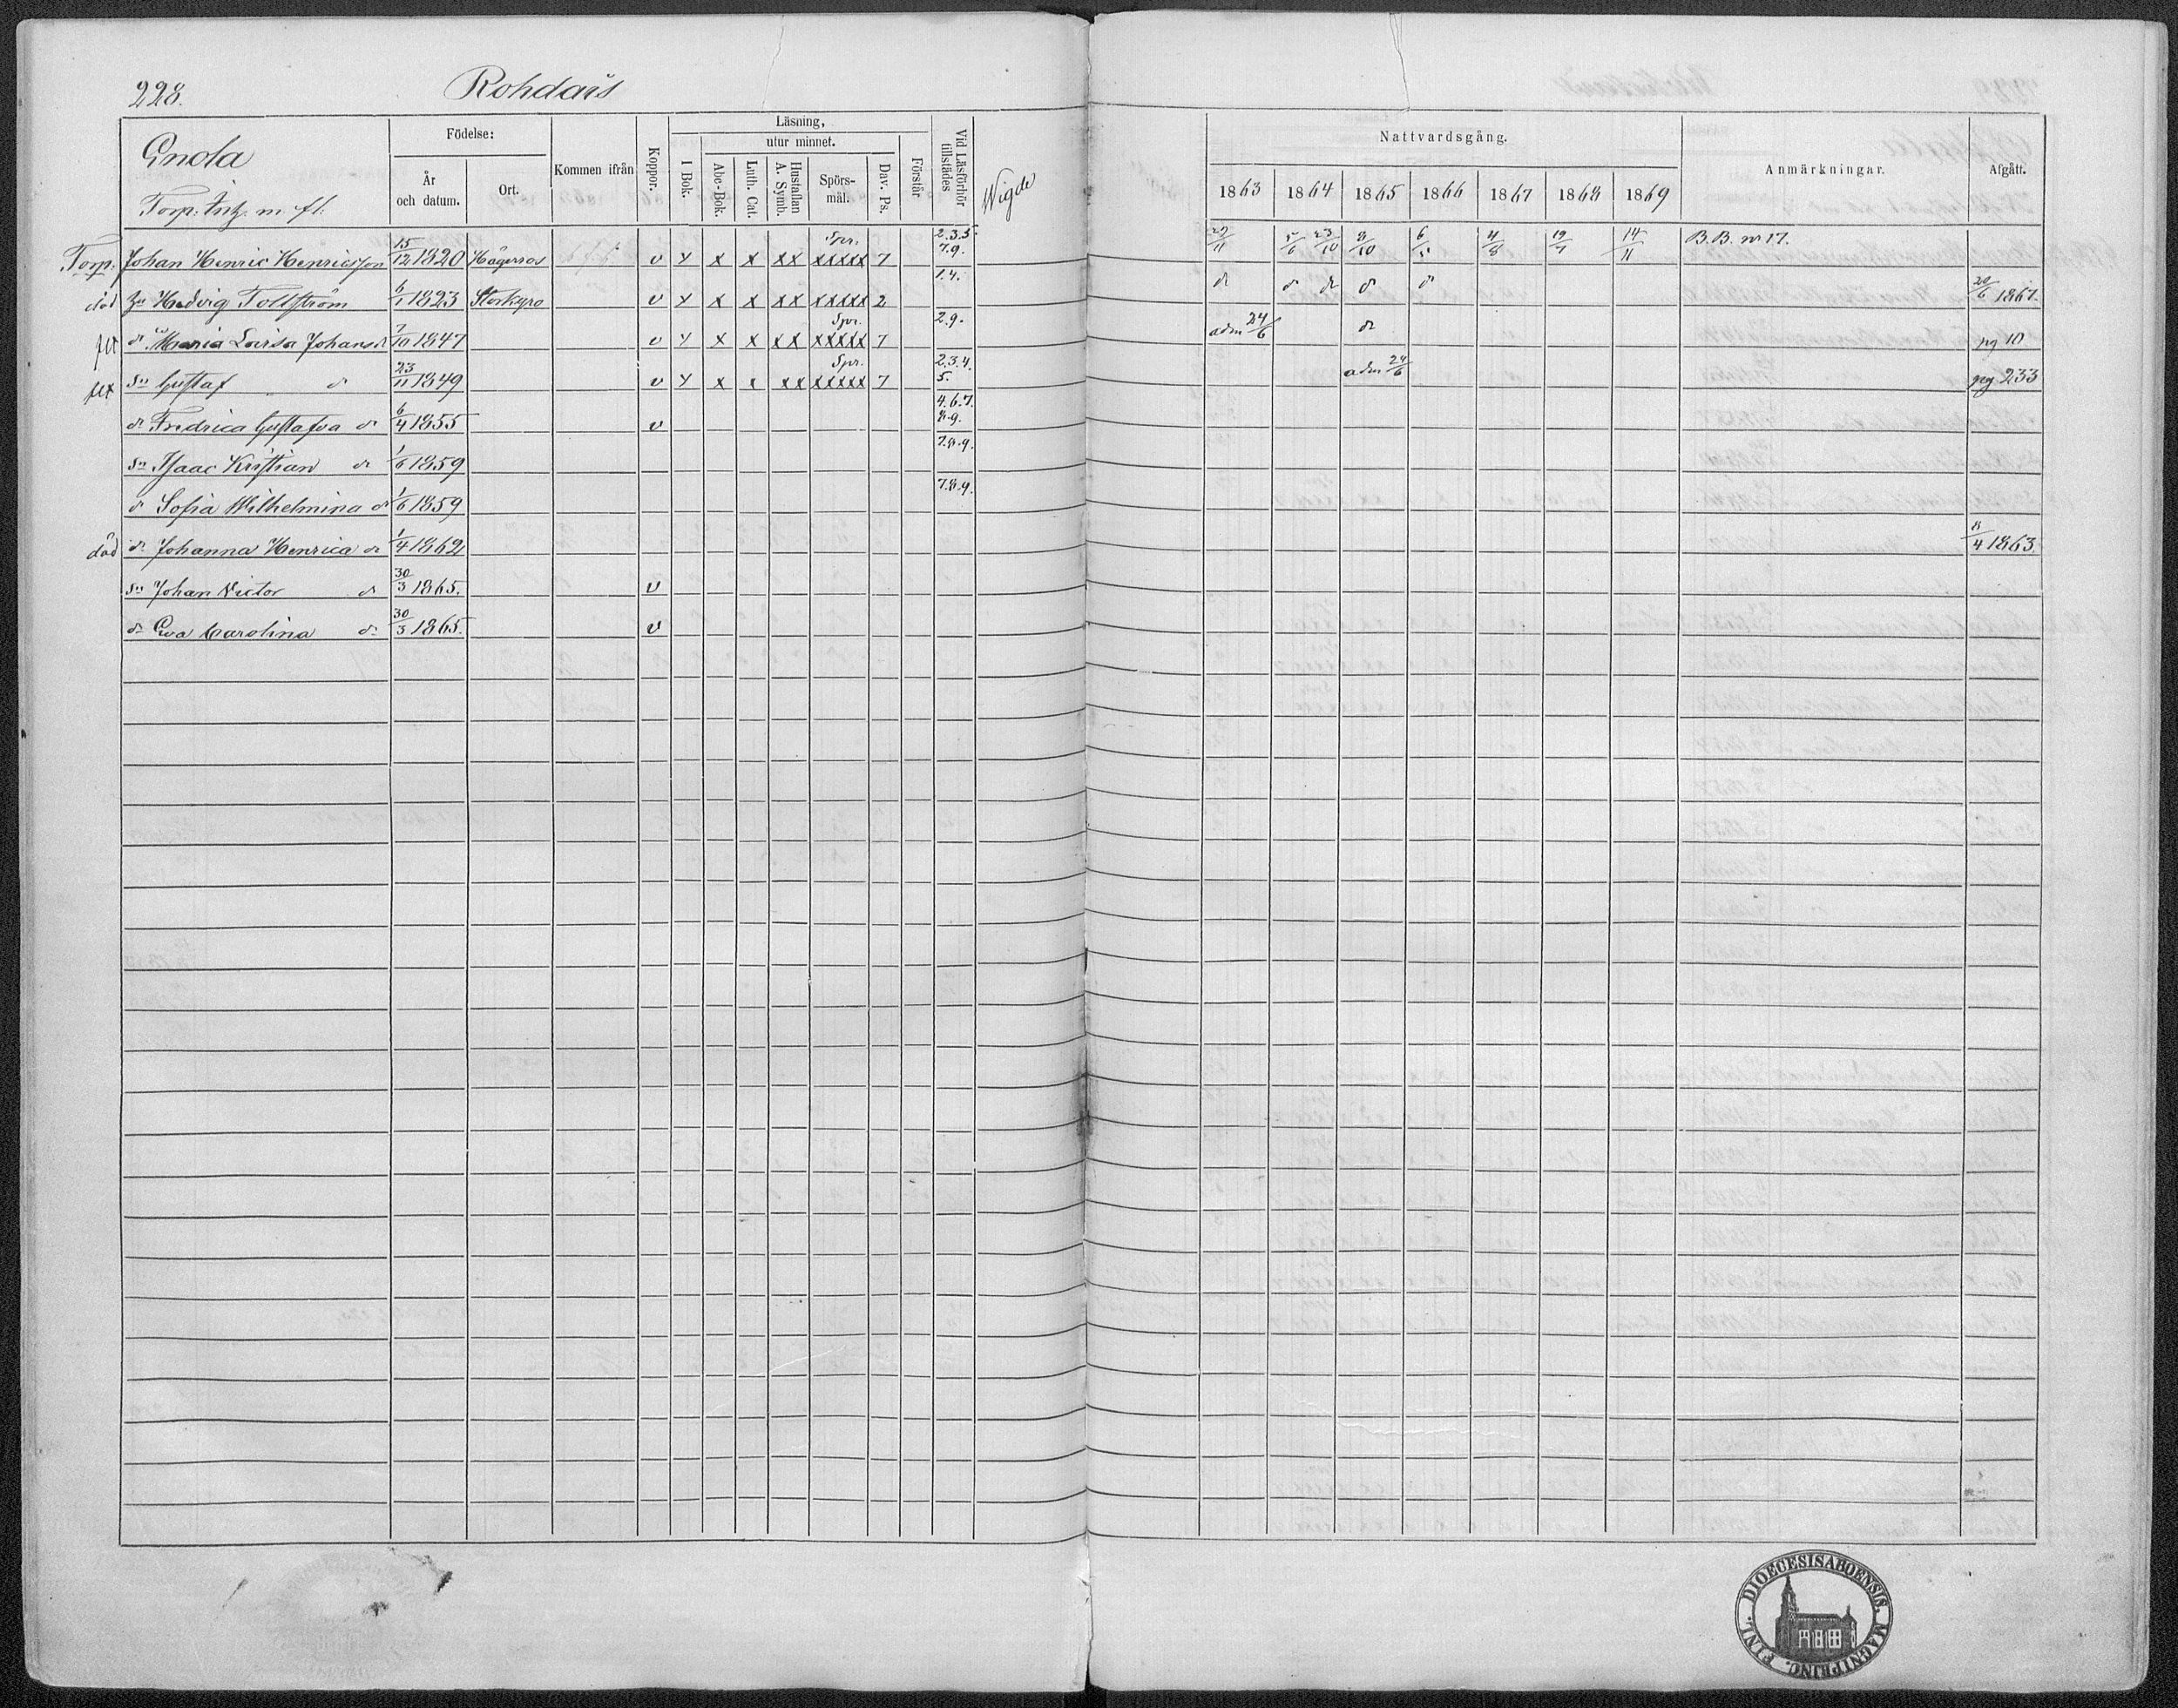 228. Rohdais
Gnola
Torp. Intz. m. fl.
Födelse:
År och datum.
Ort.
Kommen ifrån
Koppor.
Läsning,
I Bok.
utur minnet.
Abc-Bok.
Luth. Cat.
Hustaflan A. Symb.
Spörs-mål.
Dav. Ps.
Förstår
Vid Läsförhör tillstädes
Wigde
Nattvardsgång.
1863 1864 1865 1866 1867 1868 1869
Anmärkningar.
Afgått.
Torp. Johan Henric Henricsson 15/12 1820 Hågerros v Y x x xx Spr. xxxxx 7 2.3.5. 7.9. 29/11 5/6 23/10 8/10 6/5 4/8 19/7 14/11 B.B. nr 17.
död Hu Hedvig Tollström 6/1 1823 Storkyro v Y x x xx xxxxx 2 1.4. d d d d d 20/6 1867.
d Maria Lovisa Johansd 7/10 1847 v Y x x xx Spr. xxxxx 7 2.9. adm 24/6 d pg 10
Sn Gustaf d 23/11 1849 v Y x x xx Spr. xxxxx 7 2.3.4. 5. adm 24/6 pg 233
dr Fredrica Gustafva dr 6/4 1855 v 4.6.7. 8.9.
Sn Isaac Kristian dr 1/6 1859 7.8.9.
d Sofia Wilhelmina d 1/6 1859 7.8.9.
död dr Johanna Henrica dr 1/4 1862 8/4 1863.
Sn Johan Victor d 30/3 1865. v
dr Eva Carolina dr 30/3 1865. v
DIOECESIS ABOENSIS. MAGNI PRINC. FINL.